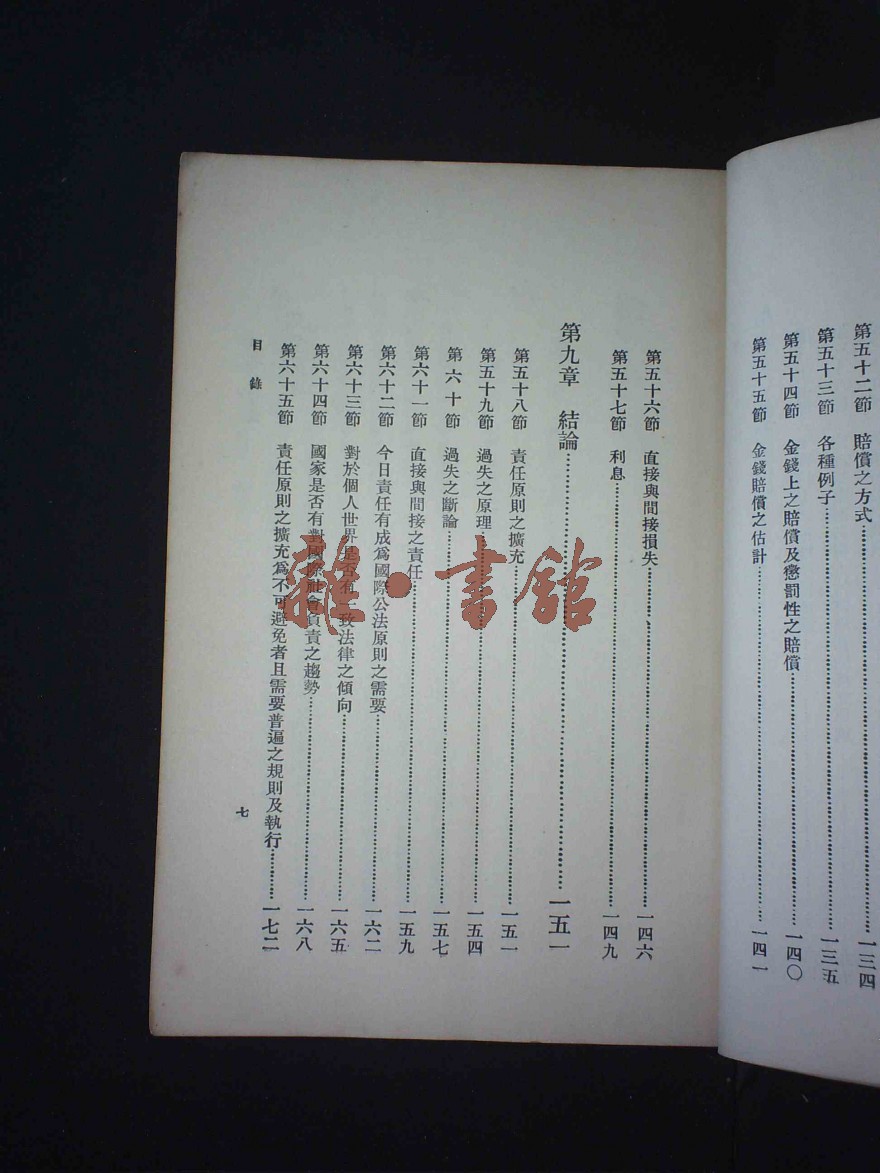 第五十二節　賠償之方式……一三四
第五十三節　各種例子……一三五
第五十四節　金錢上之賠償及懲罰性之賠償……一四〇
第五十五節　金錢賠償之估計……一四一
第五十六節　直接與間接損失……一四六
第五十七節　利息……一四九
第九章　結論……一五一
第五十八節　責任原則之擴充……一五一
第五十九節　過失之原理……一五四
第六十節　過失之斷論……一五七
第六十一節　直接與間接之責任……一五九
第六十二節　今日責任有成爲國際公法原則之需要……一六二
第六十三節　對於個人世界是否有一致法律之傾向……一六五
第六十四節　國家是否有對國際社會負責之趨勢……一六八
第六十五節　責任原則之擴充爲不可避免者且需要普遍之規則及執行……一七二
目錄
七
雜·書館